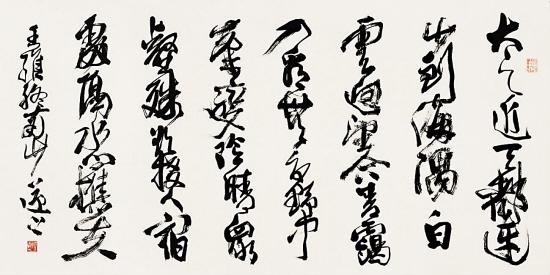 太乙近天都連
山到海隅白
雲迴望合青靄
入看無分野中
峯變陰晴衆
壑殊欲投人宿
處隔水問樵夫
王維終南山